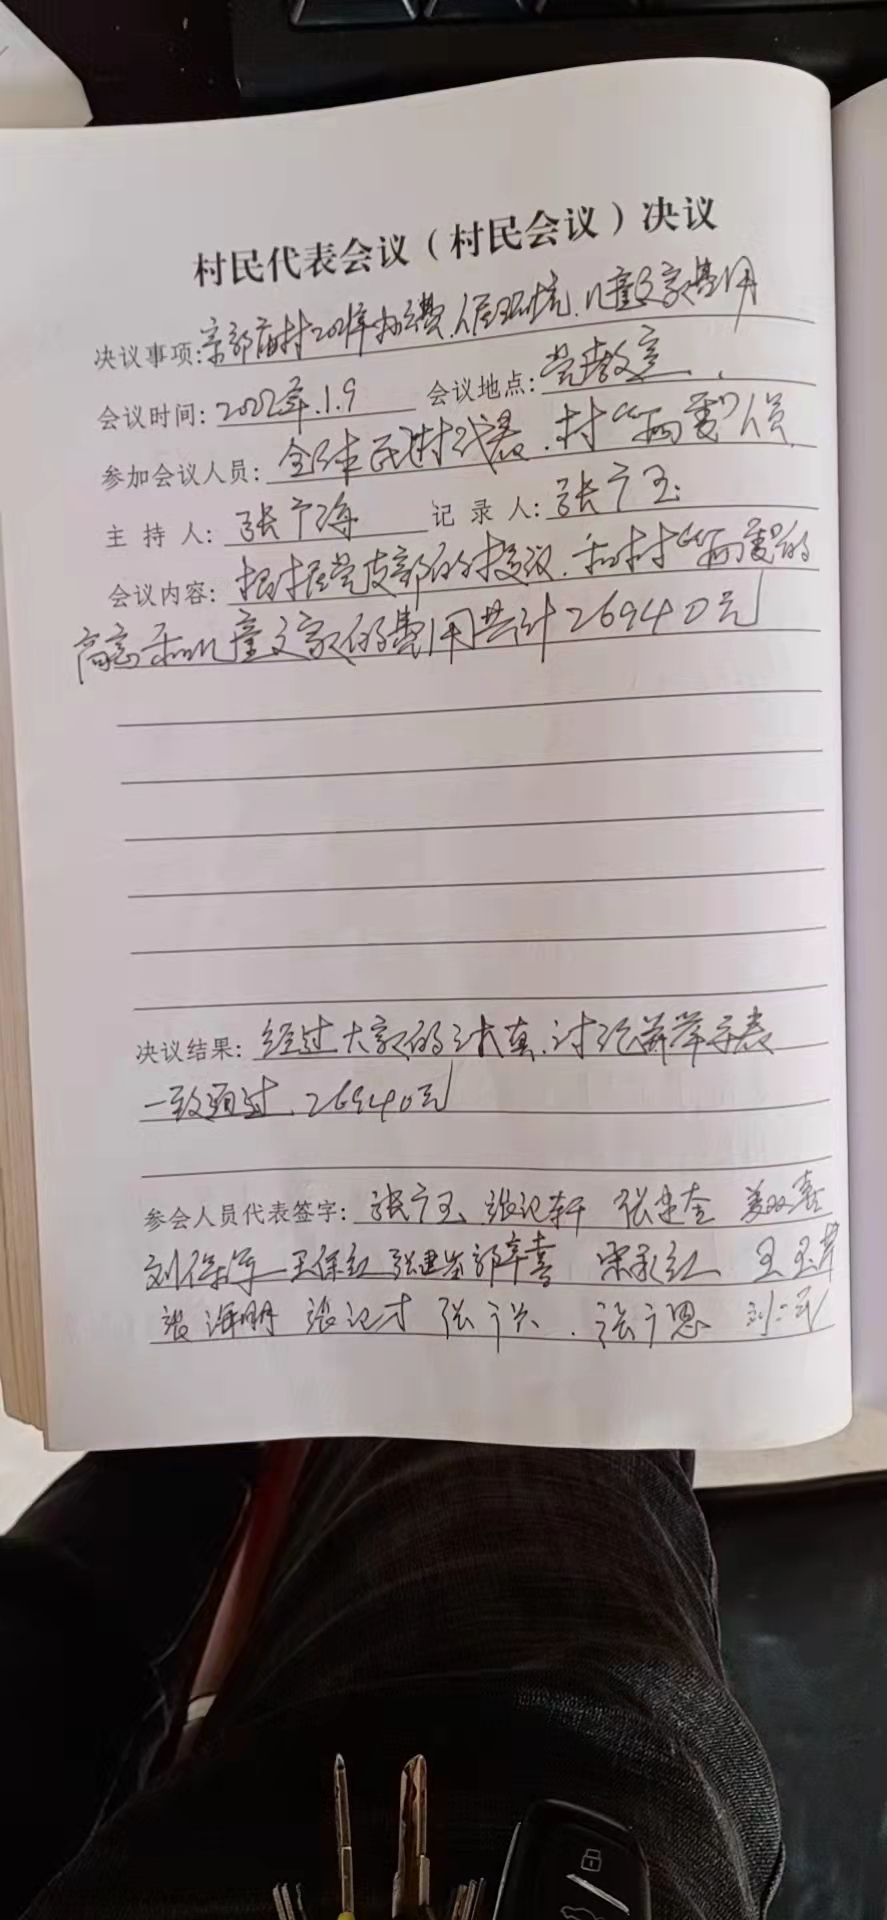 村民代表会议（村民会议）决议
决议事项:京部庙村2021年办公费、人居环境、儿童文家费用
会议时间:2022年.1.9 会议地点:党教室
参加会议人员:全体 村民代表、村“两委”人员
主 持 人:张广海 记 录 人:张广玉
会议内容:根据党支部的提议、和村“两委”的
商意和儿童文家的费用共计26940元
决议结果:经过大家的认真、讨论并举手表
一致通过、26940元
参会人员代表签字:张广玉 张记轩 张建奎
王保红 郭辛喜 宋永红
张海明 张记才 张广兴 张广恩